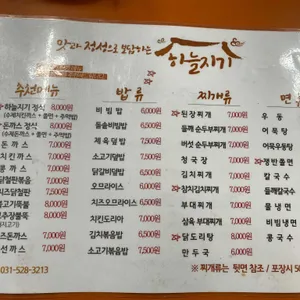 맛과 정성으로 보답하는
하늘지기
추천메뉴
하늘지기 정식 8,000원
(수제치킨까스 + 쫄면 + 주먹밥)
돈까스 정식 8,000원
돈까스 + 쫄면 + 주먹밥)
치킨까스 7,000원
7,000원
닭철판볶음 7,000원
치즈닭철판 7,500원
7,000원
고추장불묵 8,000원
돼지고기)
치즈돈까스 7,000원
7,000원
밥류
비빔밥 6,000원
돌솥비빔밥 6,500원
제육덮밥 7,000원
소고기덮밥 7,500원
닭갈비덮밥 6,500원
오므라이스 6,500원
치즈오므라이스 6,500원
치킨도리아 7,000원
김치볶음밥 6,500원
소고기볶음밥 7,500원
찌개류
된장찌개 7,000원
들깨 순두부찌개 7,000원
버섯 순두부찌개 7,000원
청국장 7,000원
김치찌개 7,000원
참치김치찌개 7,000원
부대찌개 7,000원
삼육 부대찌개 7,000원
닭도리탕 8,000원
만두국 6,500원
면
우동
어묵탕
어묵우동탕
쟁반쫄면
칼국수
물냉면
비빔냉면
콩국수
※ 찌개류는 뒷면 참조 / 포장시 50
031-528-3213